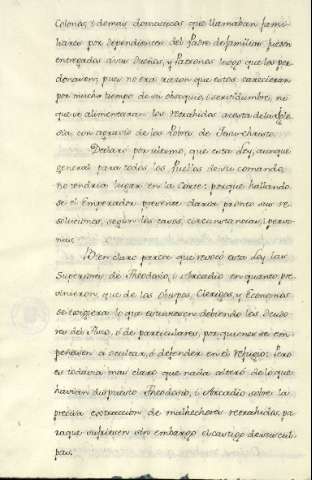 Colonos, ò demas domesticos que llamaban fami-
liares por dependientes del Padre de familias, fuesen
entregados à sus Dueños, y Patronos luego que los per-
donasen; pues no era razon que estos careciesen
por mucho tiempo de su obsequio, ò servidumbre, ni
que se alimentaran los retrahidos à costa de la Igle
sia con agravio de los Pobres de Jesu-christo.
Declarò por ultimo, que esta Ley, aunque
general para todos los Pueblos de su comando,
no tendria lugar en la Corte: porque hallando-
se el Emperador presente daria pronto sus re-
soluciones, segun los casos, circunstancias, i perso-
nas.
Bien claro parece que revocò esta Ley las
Superiores de Theodosio, ò Arcadio en quanto pre-
vinieron, que de los Obispos, Clerigos, y Economos
se exigiera lo que estuviesen debiendo los Deudo-
res del Fisco, ò de particulares, por quienes se em-
peñasen à ocultar, ò defender en el refugio: Pero
es todavia mas claro que nada alterò de lo que
havian dispuesto Theodosio, i Arcadio sobre la
precisa extraccion de malhechores retrahidos, pa
ra que sufriesen sin embargo el castigo de sus cul
pas.